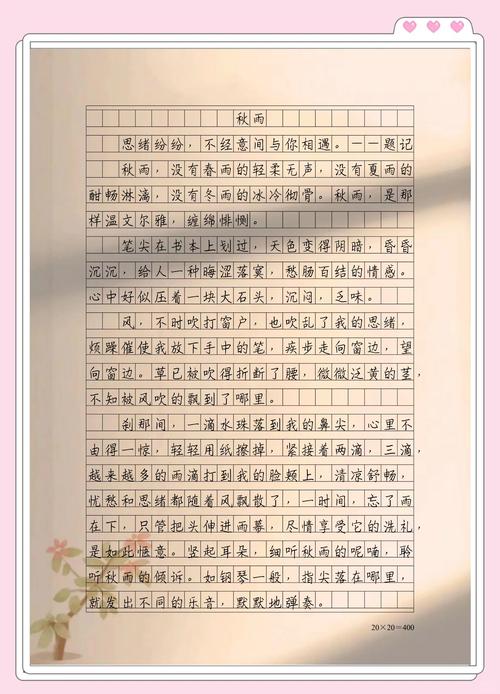 秋雨
思绪纷纷，不经意间与你相遇。——题记
秋雨，没有春雨的轻柔无声，没有夏雨的
酣畅淋漓，没有冬雨的冰冷彻骨。秋雨，是那
样温文尔雅，缠绵悱恻。
笔尖在书本上划过，天色变得阴暗，昏昏
沉沉，给人一种晦涩落寞，愁肠百结的情感。
心中好似压着一块大石头，沉闷，乏味。
风，不时吹打窗户，也吹乱了我的思绪，
烦躁催使我放下手中的笔，疾步走向窗边，望
向窗边。草已被吹得折断了腰，微微泛黄的茎，
不知被风吹的飘到了哪里。
刹那间，一滴水珠落到我的鼻尖，心里不
由得一惊，轻轻用纸擦掉，紧接着两滴，三滴，
越来越多的雨滴打到我的脸颊上，清凉舒畅，
忧愁和思绪都随着风飘散了，一时间，忘了雨
在下，只管把头伸进雨幕，尽情享受它的洗礼，
是如此惬意。竖起耳朵，细听秋雨的呢喃，聆
听秋雨的倾诉。如钢琴一般，指尖落在哪里，
就发出不同的乐音，默默地弹奏。
20×20=400